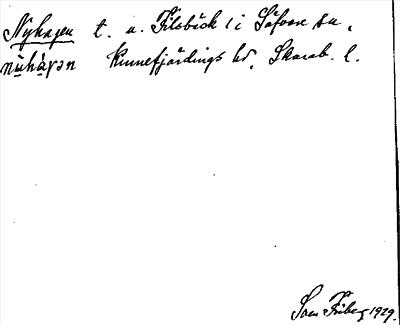 Nyhagen t. u. Filsbäck 1 i Säfvare sn,
nẏhàgən Kinnefjärdings hd, Skarab. l.
Sven Friberg 1929.